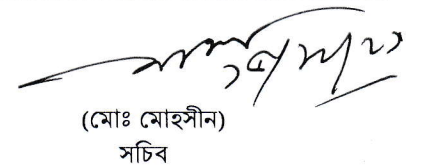 (মোঃ মোহসীন)
সচিব